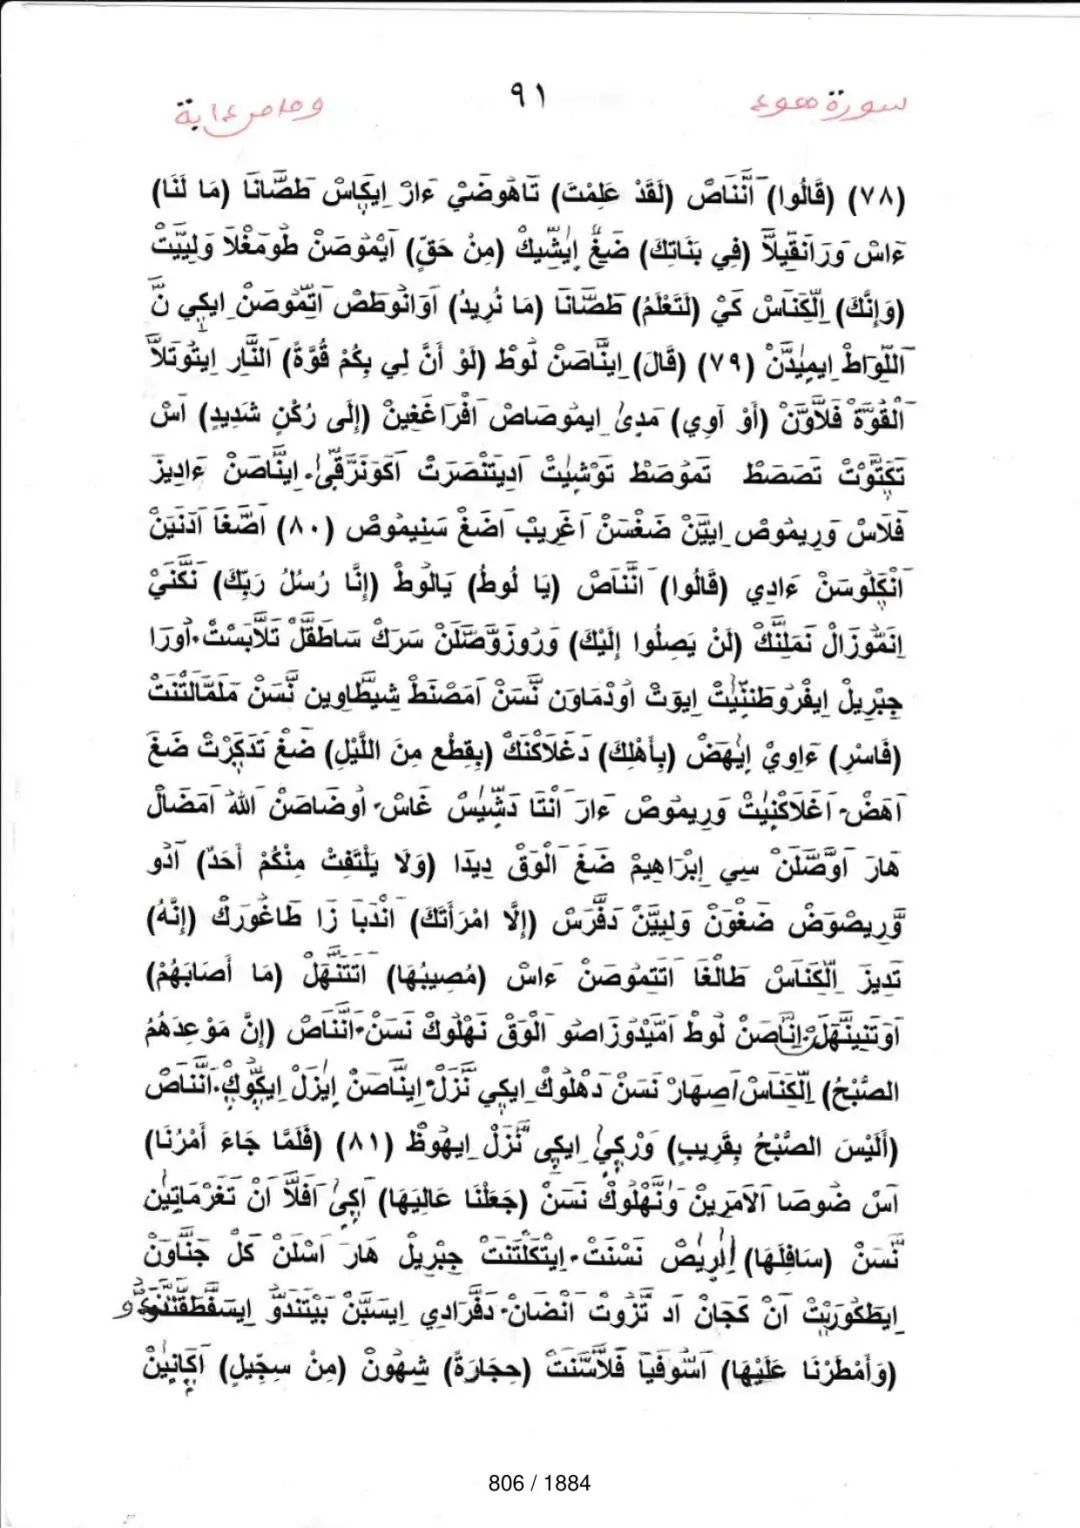 سورة هود ٩١ وما من دابة
(٧٨) (قَالُوا) اَنَّنَاصْ (لَقَدْ عَلِمْتَ) تَاهُوضَيْ ءَارْ اِيكَاسْ طَصَّانَا (مَا لَنَا)
ءَاسْ وَرَانَقِيلَّا (فِي بَنَاتِكَ) ضَغْ اِيشِّيكْ (مِنْ حَقٍّ) اَيْمُوصَنْ طُومَغْلَا وَلِيِّيتْ
(وَإِنَّكَ) اِلْكِنَاسْ كَيْ (لَتَعْلَمُ) طَصَّانَا (مَا نُرِيدُ) اَوَانُوطَصْ اَتِّمُوصَنْ اِيكِي نَّ
اَللِّوَاطْ اِيمِيدَّنْ (٧٩) (قَالَ) اِينَّاصَنْ لُوطْ (لَوْ أَنَّ لِي بِكُمْ قُوَّةً) اَلنَّارْ اِيتْوَتَلَّا
اَلْقُوَّةْ فَلَّاوَنْ (أَوْ آوِي) مَدِى اِيمُوصَاصْ اَفْرَاغَغِينْ (إِلَى رُكْنٍ شَدِيدٍ) اَسْ
تَكِتُّوتْ تَصَصَطْ تَمُوصَطْ تَوْشِيتْ اَدِيتَنْصَرَتْ اَكُونَرَقَّى اِينَّاصَنْ ءَادِيزْ
فَلَاسْ وَرِيمُوصْ اِيِيَّنْ ضَغْسَنْ اَغَرِيبْ اَضَغْ سَنِيمُوصْ (٨٠) اَضَّغَا اَدَنَيَنْ
اَنْكِلُوسَنْ ءَادِي (قَالُوا) اَنَّنَاصْ (يَا لُوطُ) يَالُوطْ (إِنَّا رُسُلُ رَبِّكَ) نَكَّنَيْ
اِنَمُّوزَالْ نَمَلِنَّكْ (لَنْ يَصِلُوا إِلَيْكَ) وَرُوزَوَّصَّلَنْ سَرَكْ سَاطَقَّلْ تَلَّابَسْتْ اُورَا
جِبْرِيلْ اِيفْرُوطَنِّيتْ اِيوَتْ اُودْمَاوَنْ نَّسَنْ اَمَصْنَطْ شِيطَّاوِينْ نَّسَنْ مَلَمَّالَتْنَتْ
(فَاسْرِ) ءَاوِيْ اِيهَضْ (بِأَهْلِكَ) دَغْلَاكْنَكْ (بِقِطْعٍ مِنَ اللَّيْلِ) ضَغْ تَدَكِرْتْ ضَغَ
اَهَضْ اَغَلَاكْنِيتْ وَرِيمُوصْ ءَارْ اَنْتَا دَشِّيسْ غَاسْ اُوضَاصَنْ اَللهُ اَمَضَالْ
هَارْ اَوَّصَّلَنْ سِي إِبْرَاهِيمْ ضَغَ اَلْوَقْ دِيدَا (وَلَا يَلْتَفِتْ مِنْكُمْ أَحَدٌ) اَدْوَ
وَّرِيصْوَضْ ضَغْوَنْ وَلِيِيَّنْ دَفَّرَسْ (إِلَّا امْرَأَتَكَ) اَنْدَبَا زَا طَاغُورَكْ (إِنَّهُ)
تَدِيزْ اِلْكِنَاسْ طَالَغَا اَتَتَمُوصَنْ ءَاسْ (مُصِيبُهَا) اَتَتَنْهَلْ (مَا أَصَابَهُمْ)
اَوَتَنِينَّهَلْ اِنَّاصَنْ لُوطْ اَمَّيْدُوزَاصْوَ اَلْوَقْ نَهْلُوكْ نَسَنْ اَنَّنَاصْ (إِنَّ مَوْعِدَهُمُ
الصُّبْحُ) اِلْكِنَاسْ اَصِهَارْ نَسَنْ دَهْلُوكْ اِيكِي نَّزَلْ اِينَّاصَنْ اِيزَلْ اِيكَوُّكْ اَنَّنَاصْ
(أَلَيْسَ الصُّبْحُ بِقَرِيبٍ) وَرْكِيْ اِيكِى نَّزَلْ اِيهُوظْ (٨١) (فَلَمَّا جَاءَ أَمْرُنَا)
اَسْ ضُوصَا اَلَامَرِينْ وَنْهْلُوكْ نَسَنْ (جَعَلْنَا عَالِيَهَا) اَكِىْ اَفَلَّا اَنْ تَغْرَمَاتِينْ
نَّسَنْ (سَافِلَهَا) اِلْرِيصْ نَسْنَتْ اِيتْكَلْتَنَتْ جِبْرِيلْ هَارْ اَسْلَنْ كَلْ جَنَّاوَنْ
اِيطَكُورِيتْ اَنْ كَجَانْ اَدْ تَزْوَتْ اَنْضَانْ دَفَّرَادِي اِيسَبَّنْ بَيْتَنْدَوْ
(وَأَمْطَرْنَا عَلَيْهَا) اَسُّوفَيَا فَلَّاسْنَتْ (حِجَارَةً) شِهُونْ (مِنْ سِجِّيلٍ) اَكَانِينْ
806 / 1884